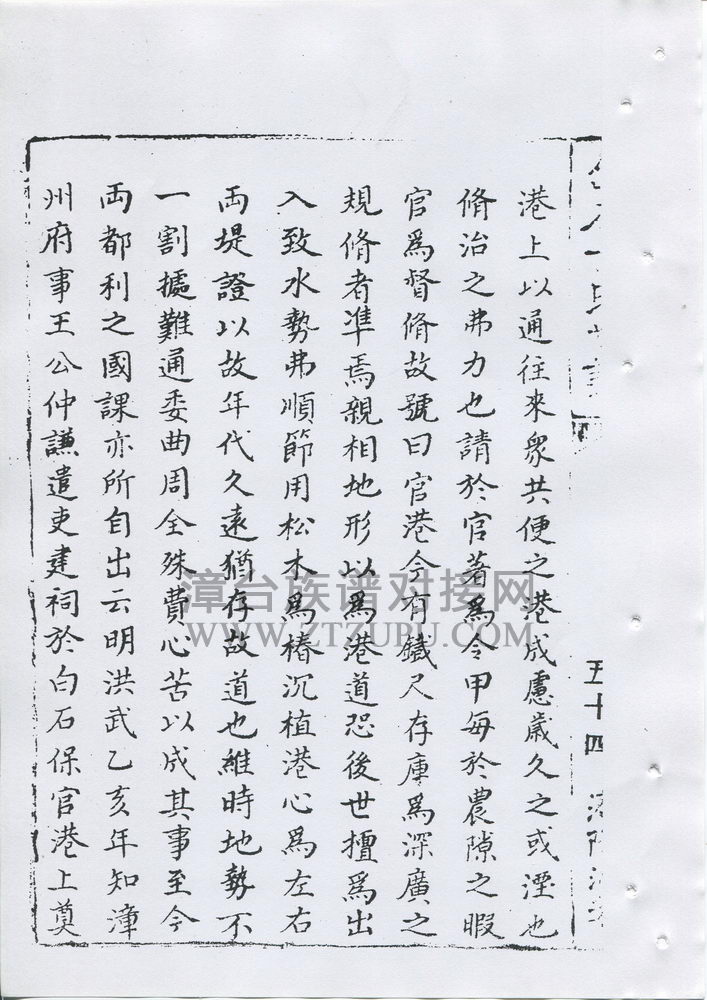 五十四
港上以通往來衆共便之港成慮歲久之或湮也
脩治之弗力也請於官著爲令甲每於農隙之暇
官爲督脩故號曰官港今有鐵尺存庫爲深廣之
規脩者準焉親相地形以爲港道恐後世擅爲出
入致水勢弗順節用松木爲樁沉植港心爲左右
両堤證以故年代久遠猶存故道也維時地勢不
一割據難通委曲周全殊費心苦以成其事至今
両都利之國課亦所自出云明洪武乙亥年知漳
州府事王公仲謙遣吏建祠於白石保官港上奠
漳台族谱对接网
WWW.ZTZUPU.COM